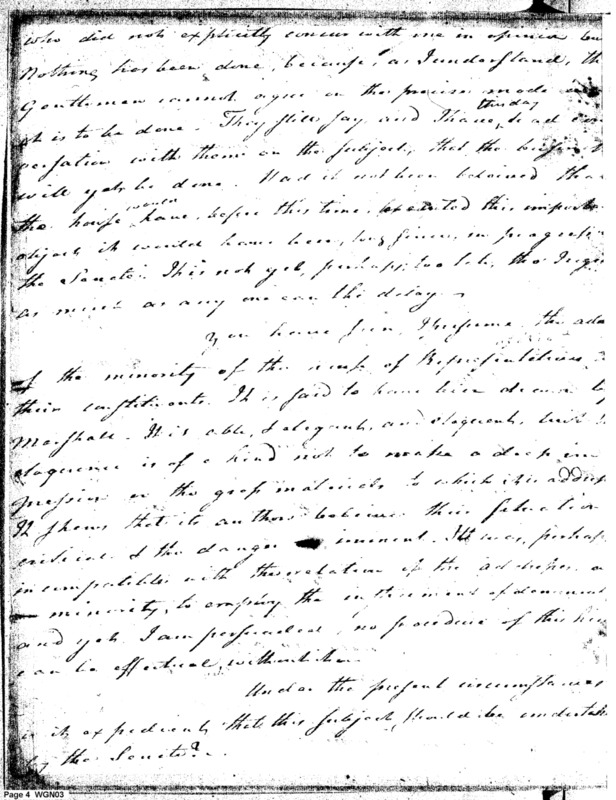 who did not explicitly concur with me in opinion but
Nothing has been done, because, as I understand, the
Gentlemen cannot agree on the precise mode
it is to be done. They still say and I have, to day
had con
versation with them on the subject, that the business
will yet be done. Had it not been believed that
the house would have, before this time, executed this important
object, it would have been, long since, in progress in
the Senate. It is not yet, perhaps, too late, tho I regret
as much as any one can the delay.
You have seen, I presume, the address
of the minority of the house of Representatives
their constituents. It is said to have been drawn by
Marshall. It is able, & elegant, and eloquent, but
eloquence is of a kind not to make a deep im
pression on the gross materials to which it is addressed
It shews that its author believes their situation
critical & the danger iminent. It was, perhaps
incompatible with the relation of the addressers, a
minority, to employ the instrument of
and yet, I am persuaded, no procedure of this kind
can be effectual, without
Under the present circumstances
is it expedient that this subject, should be undertaken
by the Senate?
Page 4 WGN03